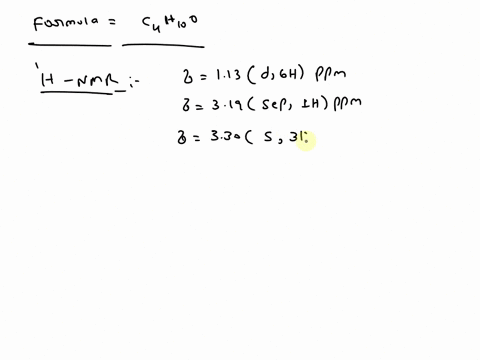 Formula = C4H10O
1H-NMR :- δ = 1.13 (d, 6H) ppm
δ = 3.19 (sep, 1H) ppm
δ = 3.30 ( s, 3H